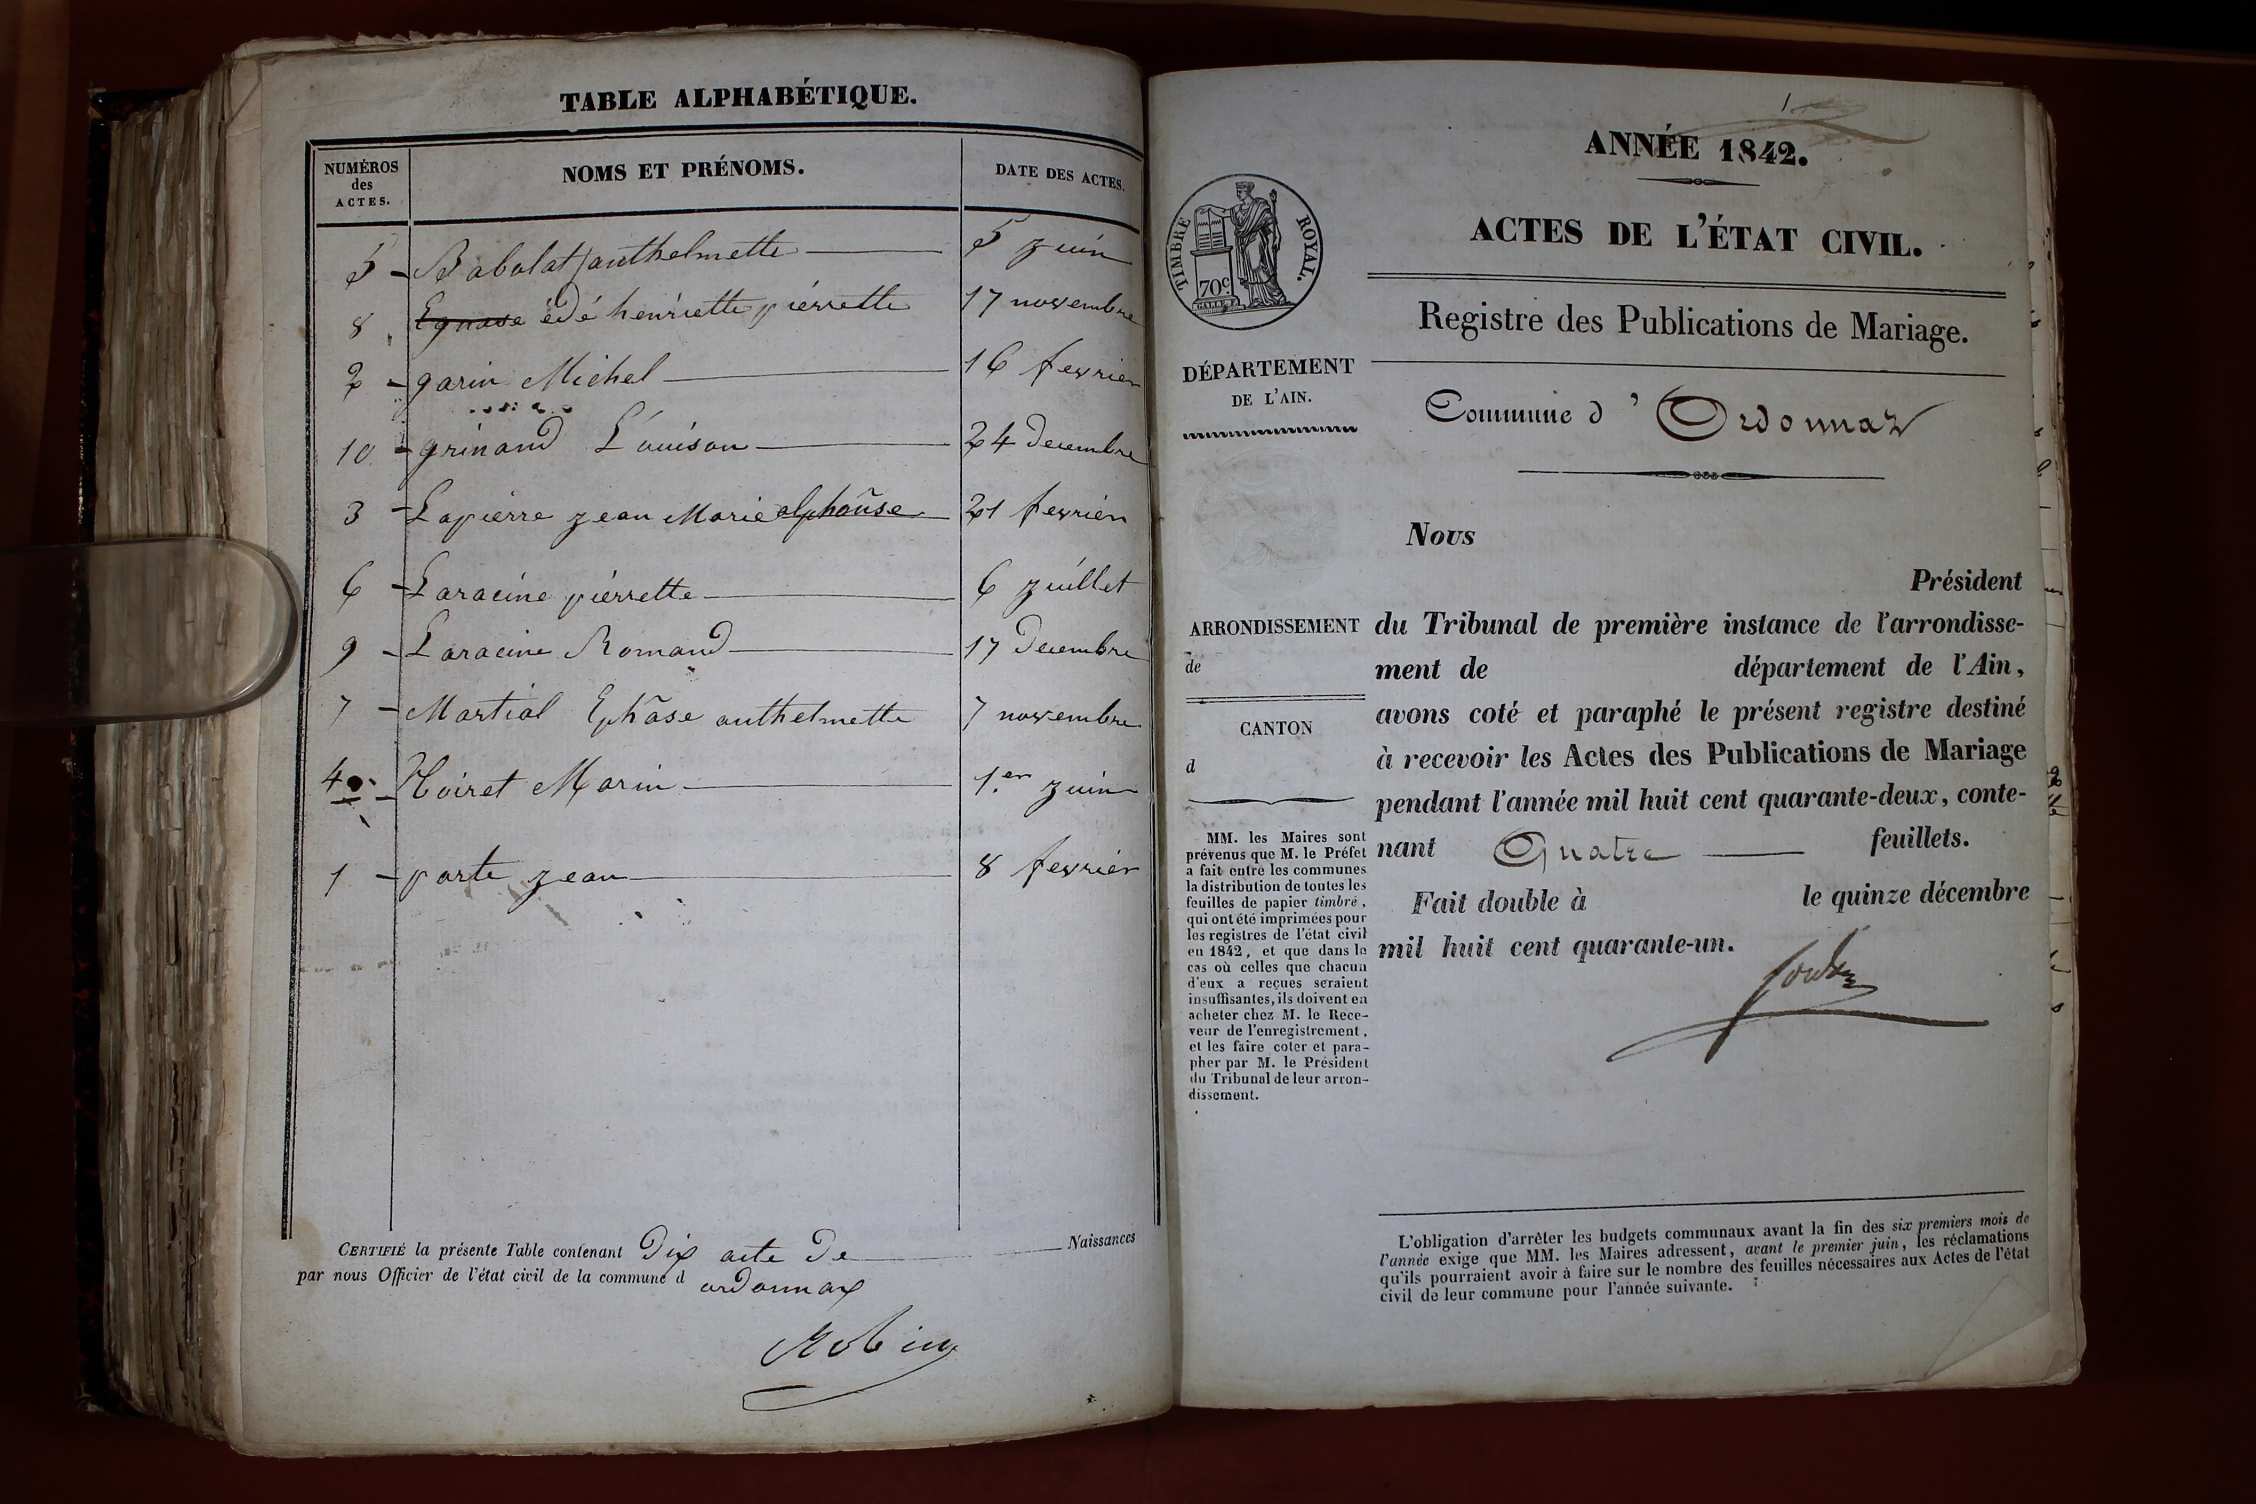 TABLE ALPHABÉTIQUE.
NUMÉROS des ACTES. NOMS ET PRÉNOMS. DATE DES ACTES.
5 - Babolat anthelmette 5 juin
8 édé henriette pierrette 17 novembre
2 - garin Michel 16 fevrier
10 - grinand Louison 24 decembre
3 - Lapierre jean Marie alphonse 21 fevrier
6 - Laracine pierrette 6 juillet
9 - Laracine Romand 17 decembre
7 - Martial anthelmette 7 novembre
4 - Marin 1.er juin
1 - porte jean 8 fevrier
CERTIFIÉ la présente Table contenant Dix acte De Naissances
par nous Officier de l'état civil de la commune d ordonnax
Robin
1
ANNÉE 1842.
ACTES DE L'ÉTAT CIVIL.
TIMBRE ROYAL.
70c.
Registre des Publications de Mariage.
DÉPARTEMENT
DE L'AIN.
Commune d'Ordonnaz
Nous
Président
ARRONDISSEMENT
de
CANTON
d
du Tribunal de première instance de l'arrondisse-
ment de département de l'Ain,
avons coté et paraphé le présent registre destiné
à recevoir les Actes des Publications de Mariage
pendant l'année mil huit cent quarante-deux, conte-
nant Quatre feuillets.
Fait double à le quinze décembre
mil huit cent quarante-un.
MM. les Maires sont
prévenus que M. le Préfet
a fait entre les communes
la distribution de toutes les
feuilles de papier timbré,
qui ont été imprimées pour
les registres de l'état civil
en 1842, et que dans le
cas où celles que chacun
d'eux a reçues seraient
insuffisantes, ils doivent en
acheter chez M. le Rece-
veur de l'enregistrement,
et les faire coter et para-
pher par M. le Président
du Tribunal de leur arron-
dissement.
L'obligation d'arrêter les budgets communaux avant la fin des six premiers mois de
l'année exige que MM. les Maires adressent, avant le premier juin, les réclamations
qu'ils pourraient avoir à faire sur le nombre des feuilles nécessaires aux Actes de l'état
civil de leur commune pour l'année suivante.